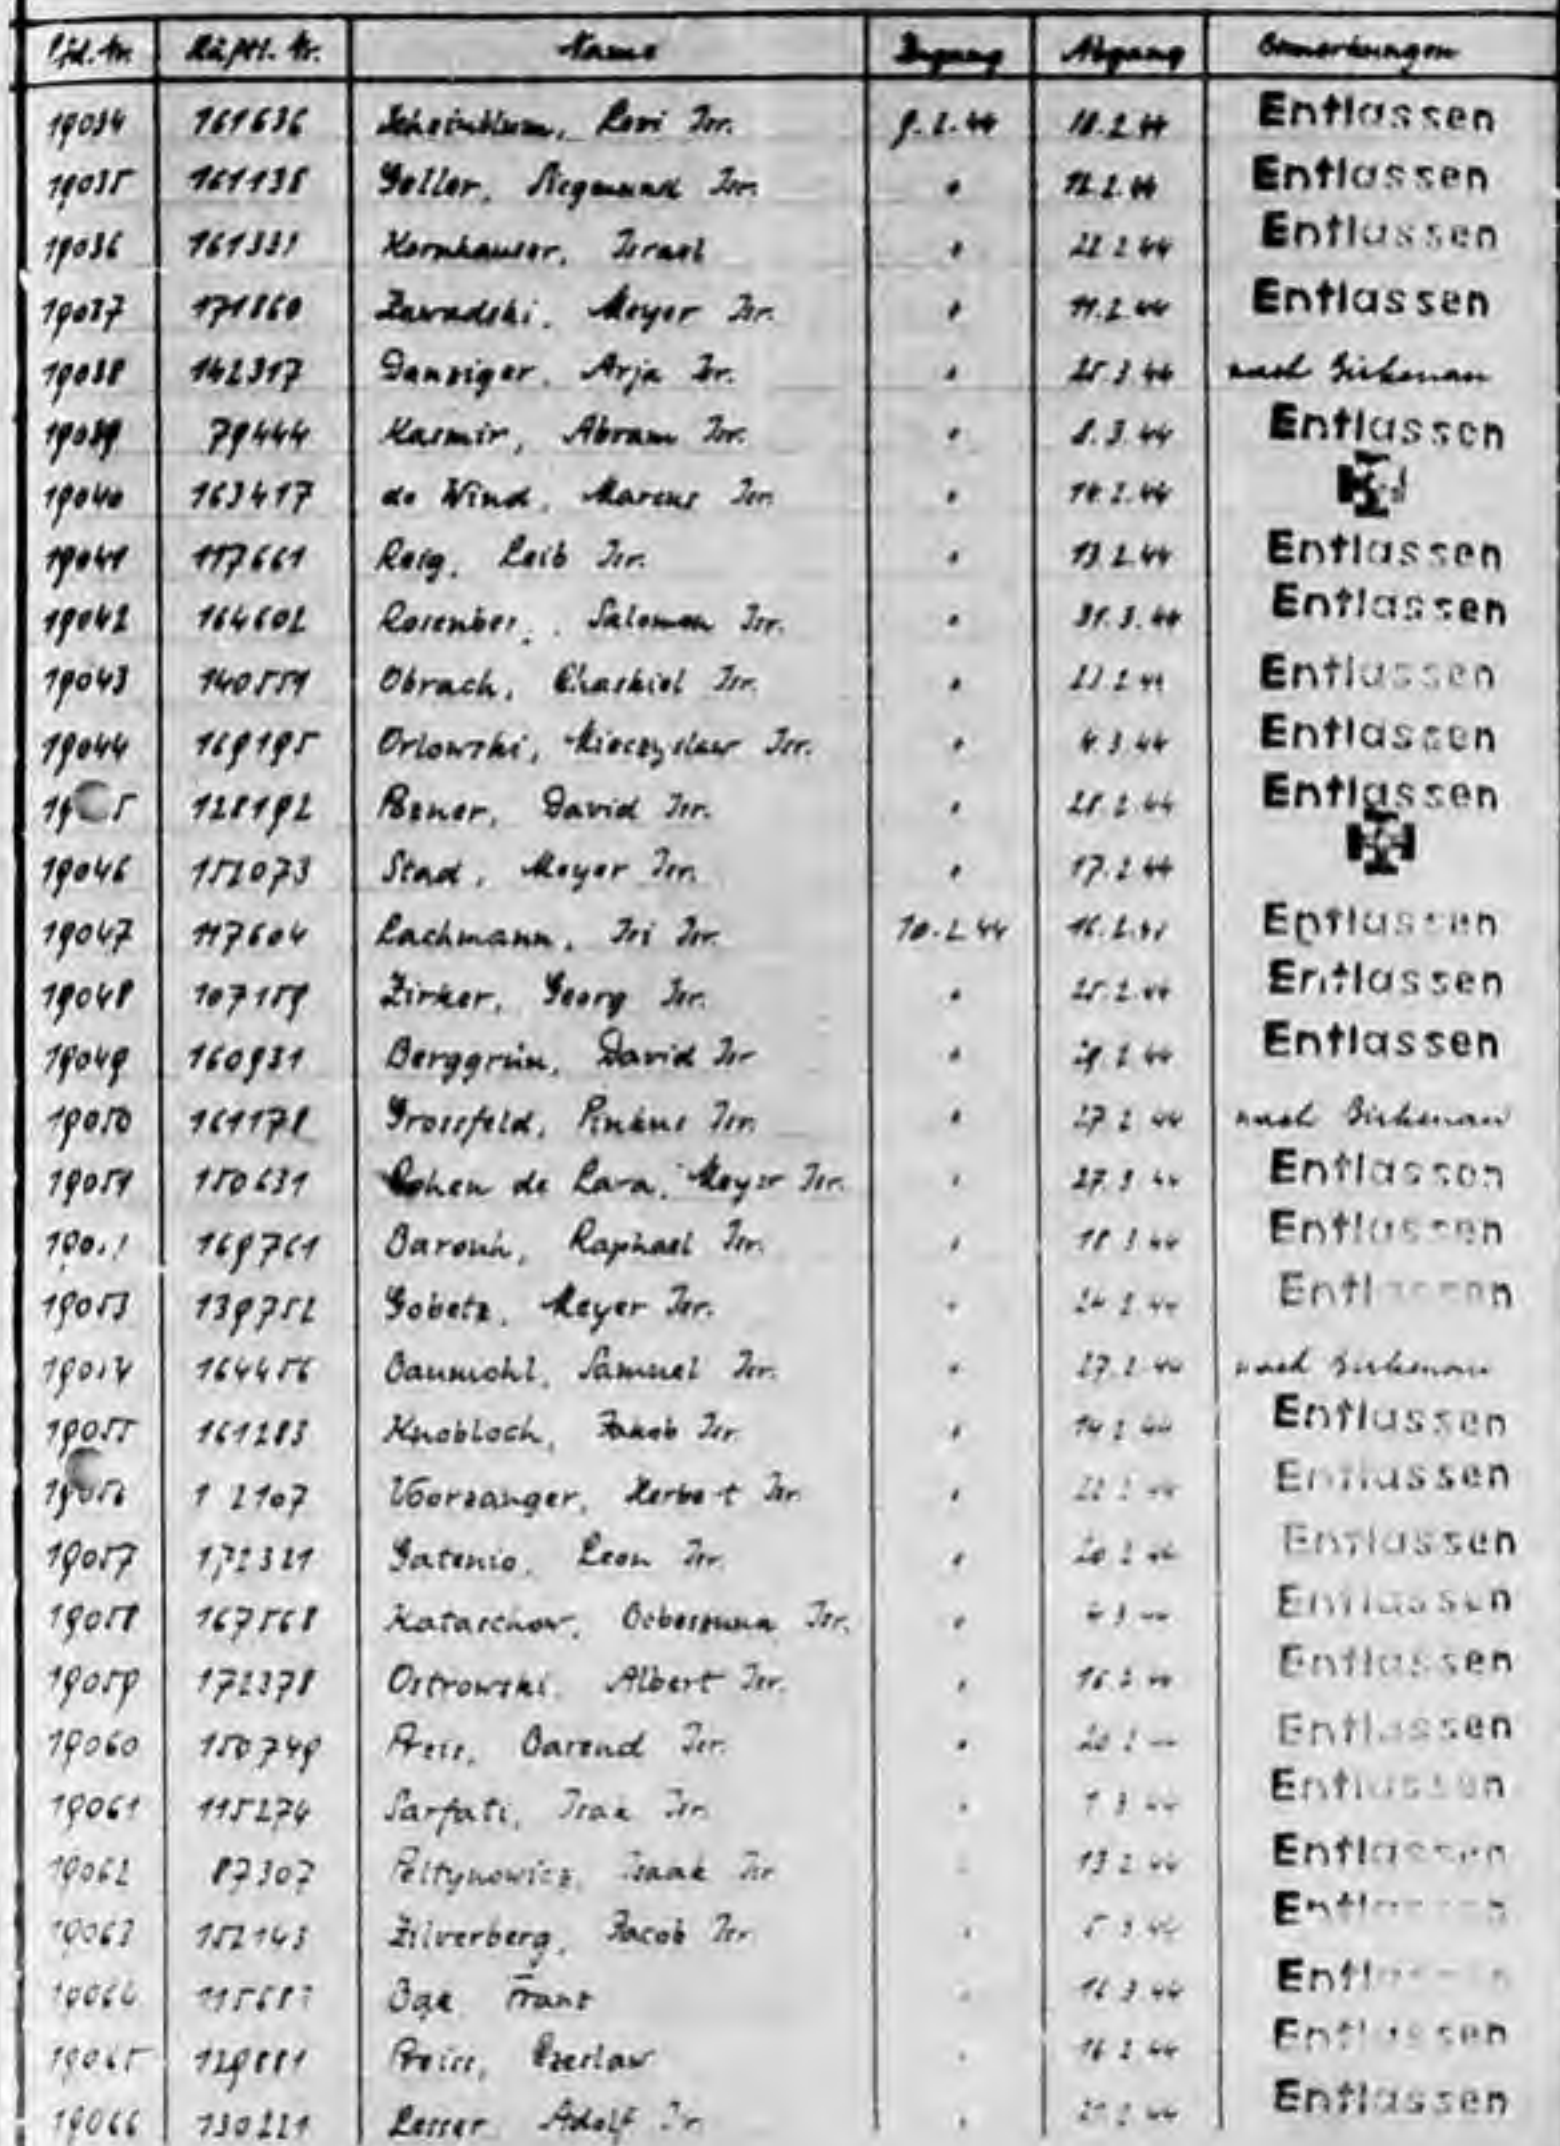 Lfd. Nr. Häftl. Nr. Name Zugang Abgang Bemerkungen
19034 161636 Scheinblum, Levi Isr. 9.2.44 18.2.44 Entlassen
19035 161138 Geller, Siegmund Isr. " 12.2.44 Entlassen
19036 161331 Kornhauser, Israel " 22.2.44 Entlassen
19037 171860 Zawadski, Meyer Isr. " 11.2.44 Entlassen
19038 142317 Danziger, Arja Isr. " 25.3.44 nach Birkenau
19039 79444 Kasmir, Abram Isr. " 8.3.44 Entlassen
19040 163417 de Wind, Marcus Isr. " 14.2.44
19041 117661 Reig, Leib Isr. " 13.2.44 Entlassen
19042 164602 Rosenber, Salomon Isr. " 31.3.44 Entlassen
19043 140551 Obrach, Chaskiel Isr. " 23.2.44 Entlassen
19044 169195 Orlowski, Mieczyslaw Isr. " 4.3.44 Entlassen
128192 Pozner, David Isr. " 28.2.44 Entlassen
19046 152073 Stad, Meyer Isr. " 17.2.44
19047 117604 Lachmann, Isi Isr. 10.2.44 16.2.44 Entlassen
19048 107159 Zirker, Georg Isr. " 25.2.44 Entlassen
19049 160931 Berggrün, David Isr " 29.2.44 Entlassen
19050 161178 Grossfeld, Pinkus Isr. " 27.2.44 nach Birkenau
19051 150631 Cohen de Lara, Meyer Isr. " 27.3.44 Entlassen
169761 Barouh, Raphael Isr. " 18.3.44 Entlassen
19053 139752 Gobetz, Meyer Isr. " 24.2.44 Entlassen
19054 164456 Baumohl, Samuel Isr. " 27.2.44 nach Birkenau
19055 161283 Knobloch, Jakob Isr. " 14.2.44 Entlassen
19056 Voorzanger, Herbert Isr. " 22.2.44 Entlassen
19057 172321 Gatenio, Leon Isr. " 20.2.44 Entlassen
19058 167568 Katarchow, Isr. " 4.3.44 Entlassen
19059 172378 Ostrowski, Albert Isr. " 16.2.44 Entlassen
19060 150749 Preis, Barend Isr. " 20.2. Entlassen
19061 115274 Sarfati, Isaak Isr. " 1.3.44 Entlassen
19062 87307 Peltynowicz, Isaak Isr " 13.2.44 Entlassen
19063 152143 Zilverberg, Jacob Isr. " 5.3.44 Entlassen
19064 Franz " 16.3.44 Entlassen
19065 129881 Preiss, Czeslaw " 16.2.44 Entlassen
19066 130221 Lesser Adolf Isr. " 21.2.44 Entlassen